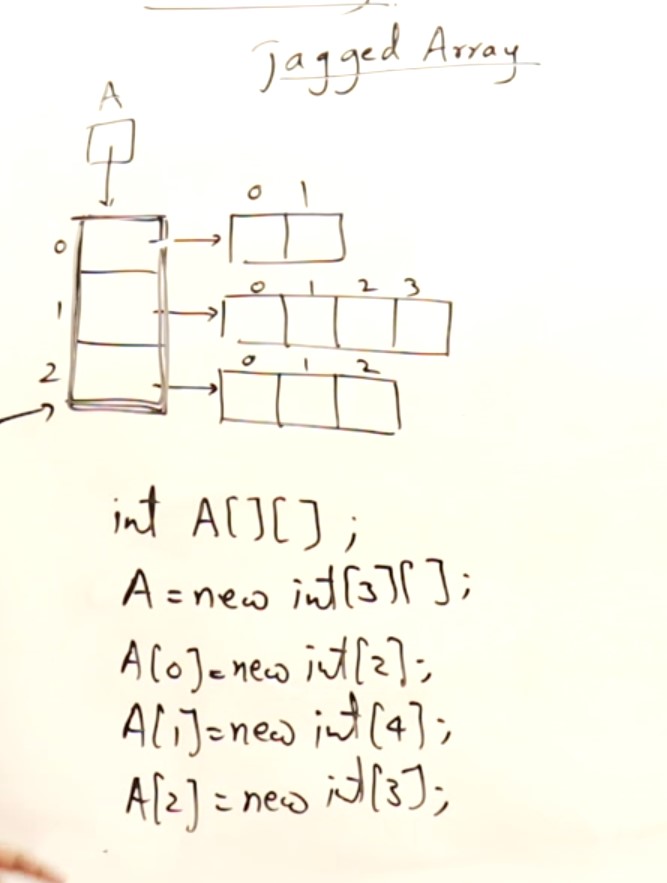 Jagged Array
A
0 1
0
0 1 2 3
1
0 1 2
2
int A[][];
A=new int[3][];
A[0]=new int[2];
A[1]=new int[4];
A[2]=new int[3];